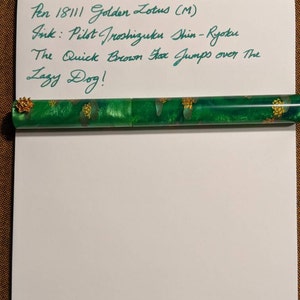 Pen 18111 Golden Lotus (M)
Ink: Pilot Iroshizuku Shin-Ryoku
The Quick Brown Fox Jumps over The
Lazy Dog!